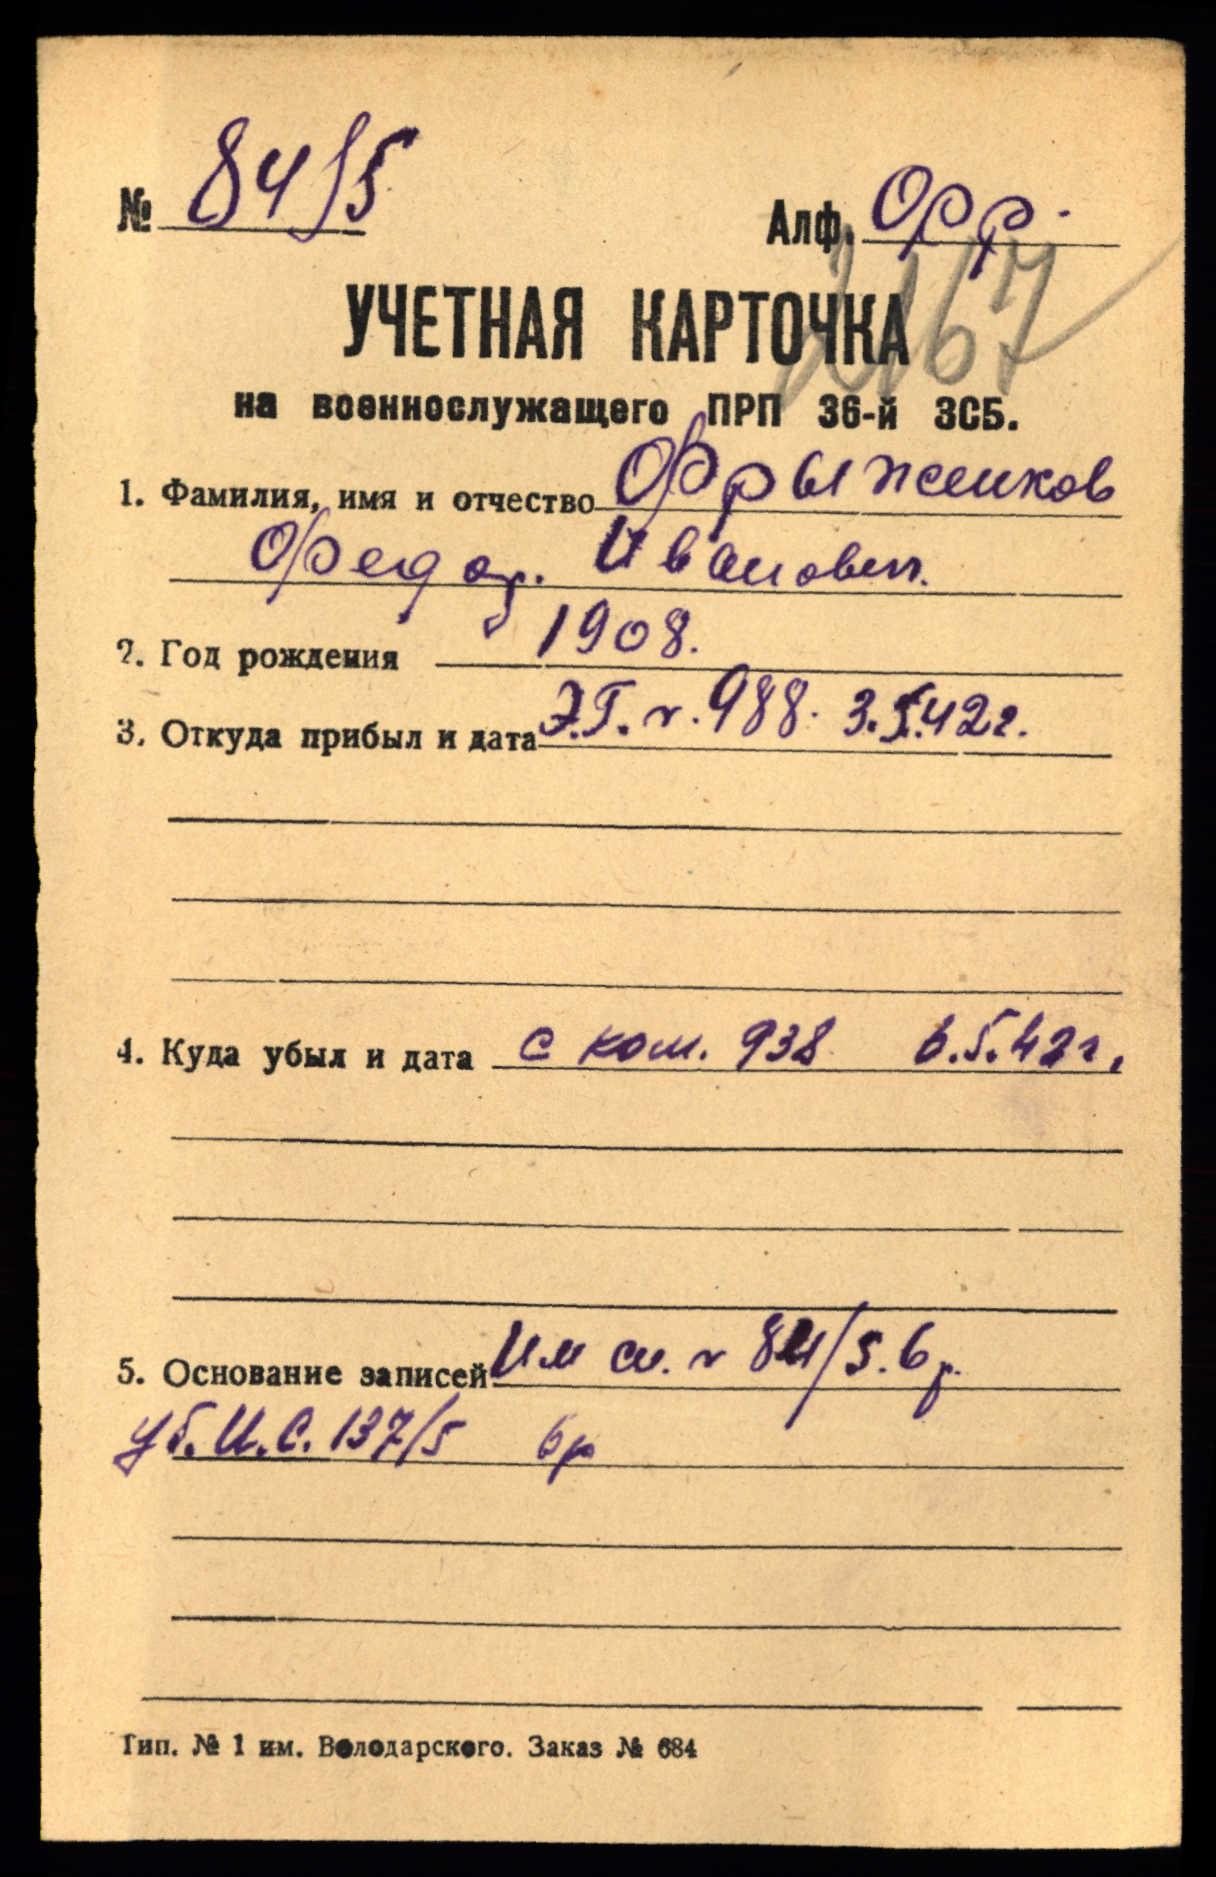 № 84/5 Алф. Фр.
2167
УЧЕТНАЯ КАРТОЧКА
на военнослужащего ПРП 36-й ЗСБ.
1. Фамилия, имя и отчество Фрыженков
Федор. Иванович.
2. Год рождения 1908.
3. Откуда прибыл и дата Э.Г. N. 988. 3.5.42г.
4. Куда убыл и дата с ком. 938 6.5.42г.
5. Основание записей Им сп. N 84/5. бр.
уб. И.С. 137/5 бр
Тип. № 1 им. Володарского. Заказ № 684